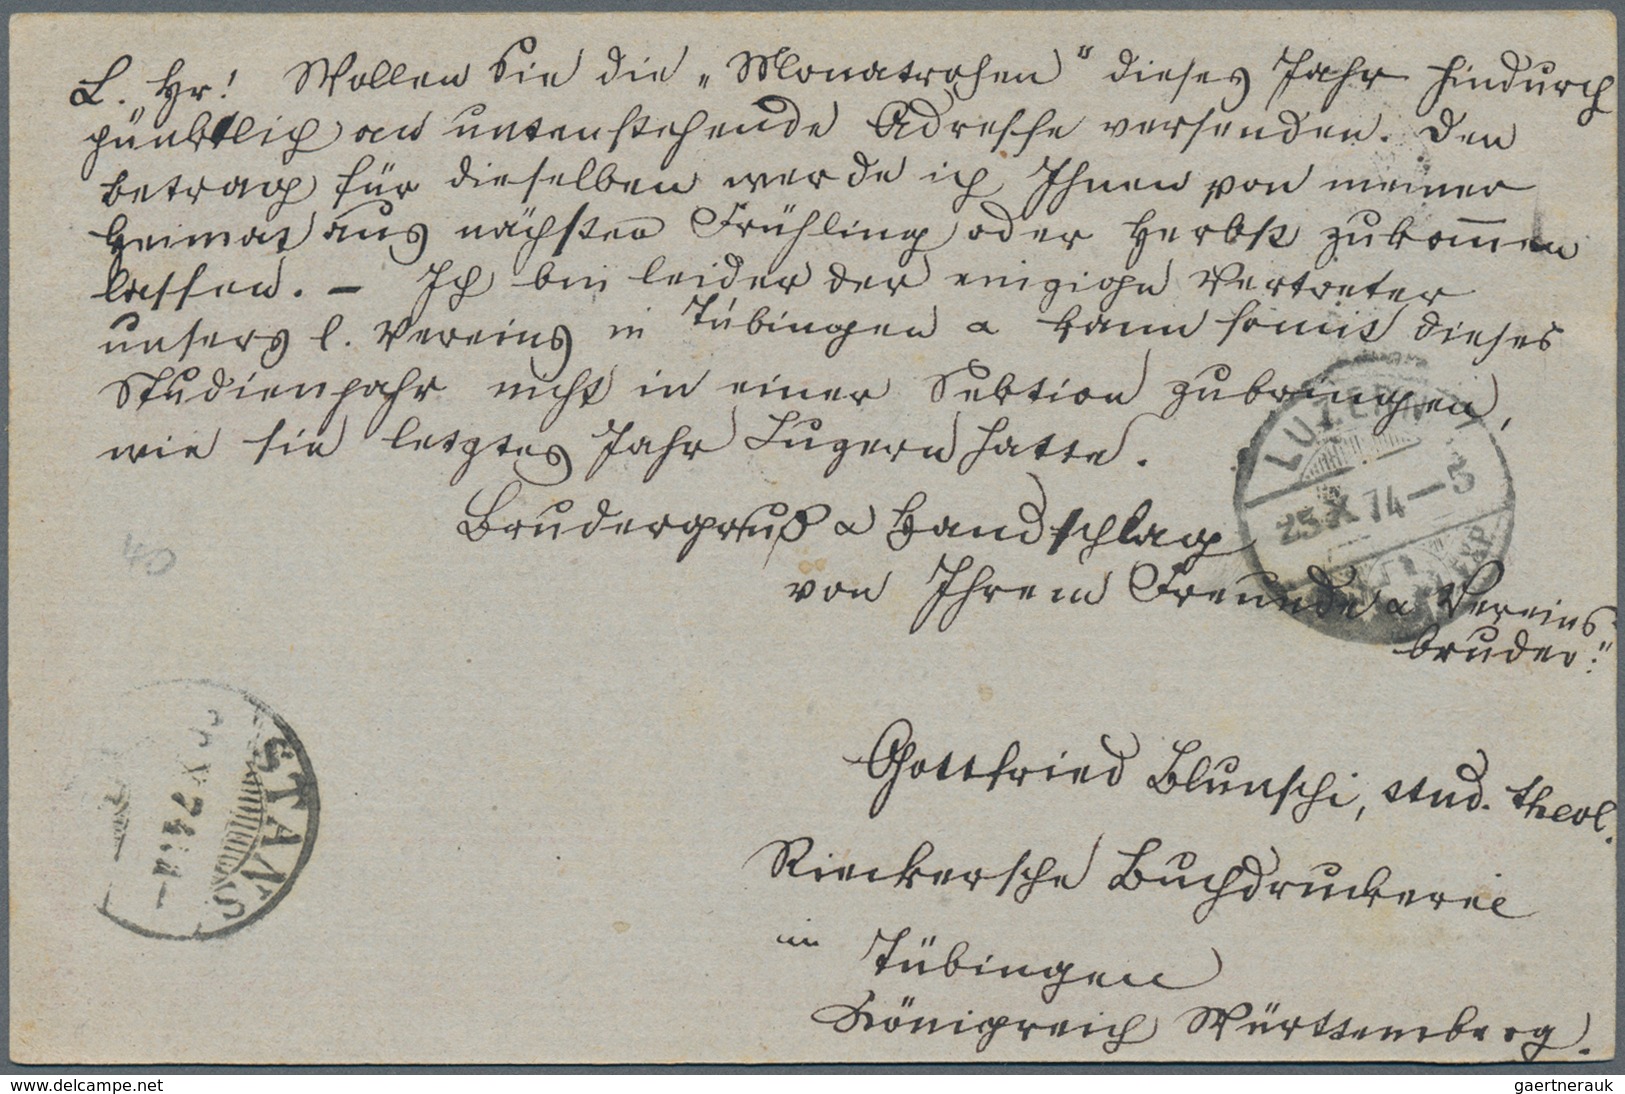 L. Hr! Wollen Sie die „Monatrosen" dieses Jahr hindurch
pünktlich an untenstehende Adresse versenden. Den
Betrag für dieselben werde ich Ihnen von meiner
Heimat aus nächsten Frühling oder Herbst zukom̅en
lassen. – Ich bin leider der einzige Vertreter
unsers l. Vereins in Tübingen & kann somit dieses
Studienjahr nicht in einer Sektion zubringen,
wie sie letztes Jahr Luzern hatte.
Brudergruß & Handschlag
von Ihrem Freunde & Vereins-
bruder:"
Gottfried Blunschi, stud. theol.
Rieckersche Buchdruckerei
in Tübingen
Königreich Württemberg.
LUZERN
25 X 74–5
EXP.
STANS
X 74
www.delcampe.net
gaertnerauk